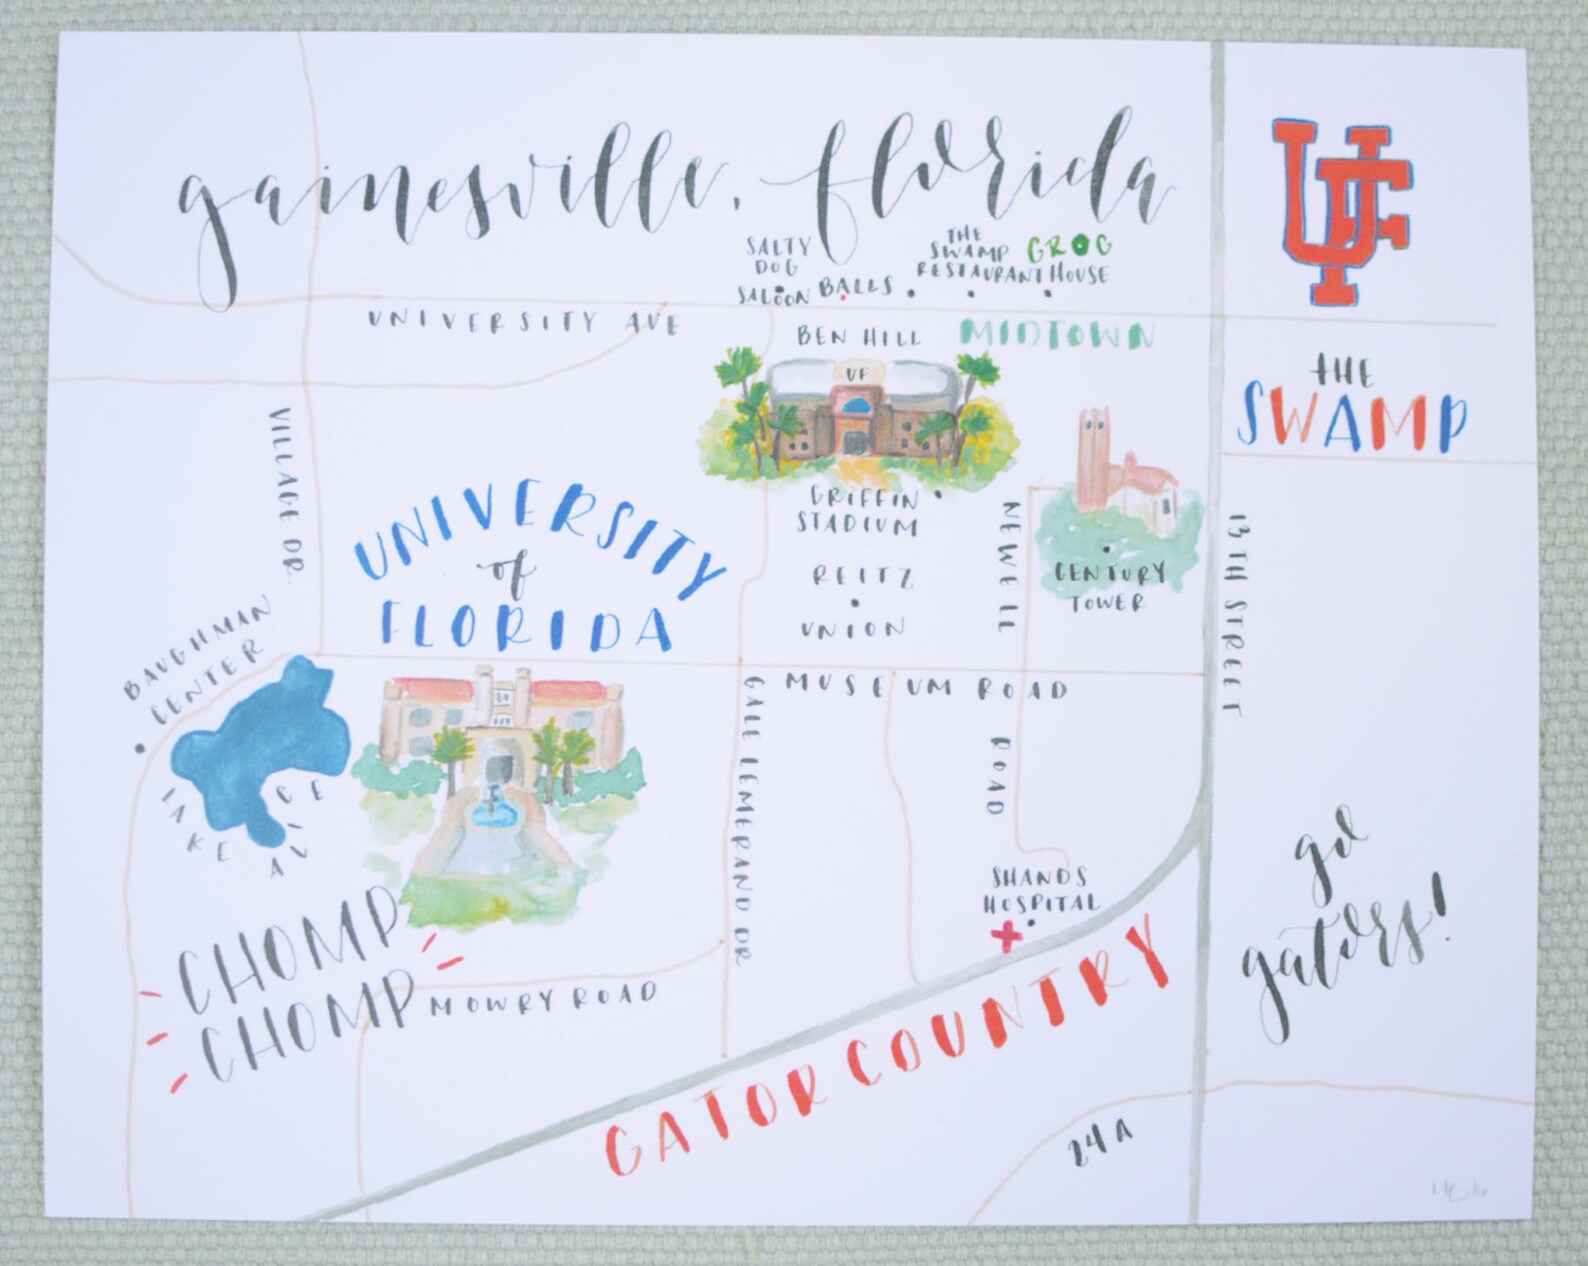 gainesville, florida
UF
SALTY
DOG
SALOON
BALLS
THE
SWAMP
RESTAURANT
GROG
HOUSE
UNIVERSITY AVE
BEN HILL
MIDTOWN
UF
THE
SWAMP
VILLAGE DR.
UNIVERSITY
of
FLORIDA
GRIFFIN
STADIUM
REITZ
UNION
NEWELL
ROAD
CENTURY
TOWER
13TH STREET
BAUGHMAN
CENTER
LAKE
ALICE
MUSEUM ROAD
GALE LEMERAND DR
SHANDS
HOSPITAL
go
gators!
CHOMP
CHOMP
MOWRY ROAD
GATOR COUNTRY
24A